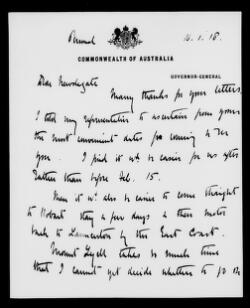 Personal
14.1.18.
COMMONWEALTH OF AUSTRALIA
GOVERNOR-GENERAL
Dear Newdegate
Many thanks for your letters.
I told my representative to ascertain from yours
the most convenient dates for coming to see
you. I find it wd. be easier for us after
rather than before Feb. 15.
Also it wd. be easier to come straight
to Hobart stay a few days & then motor
back to Launceston by the East Coast.
Mount Lyell takes so much time
that I cannot yet decide whether to go on